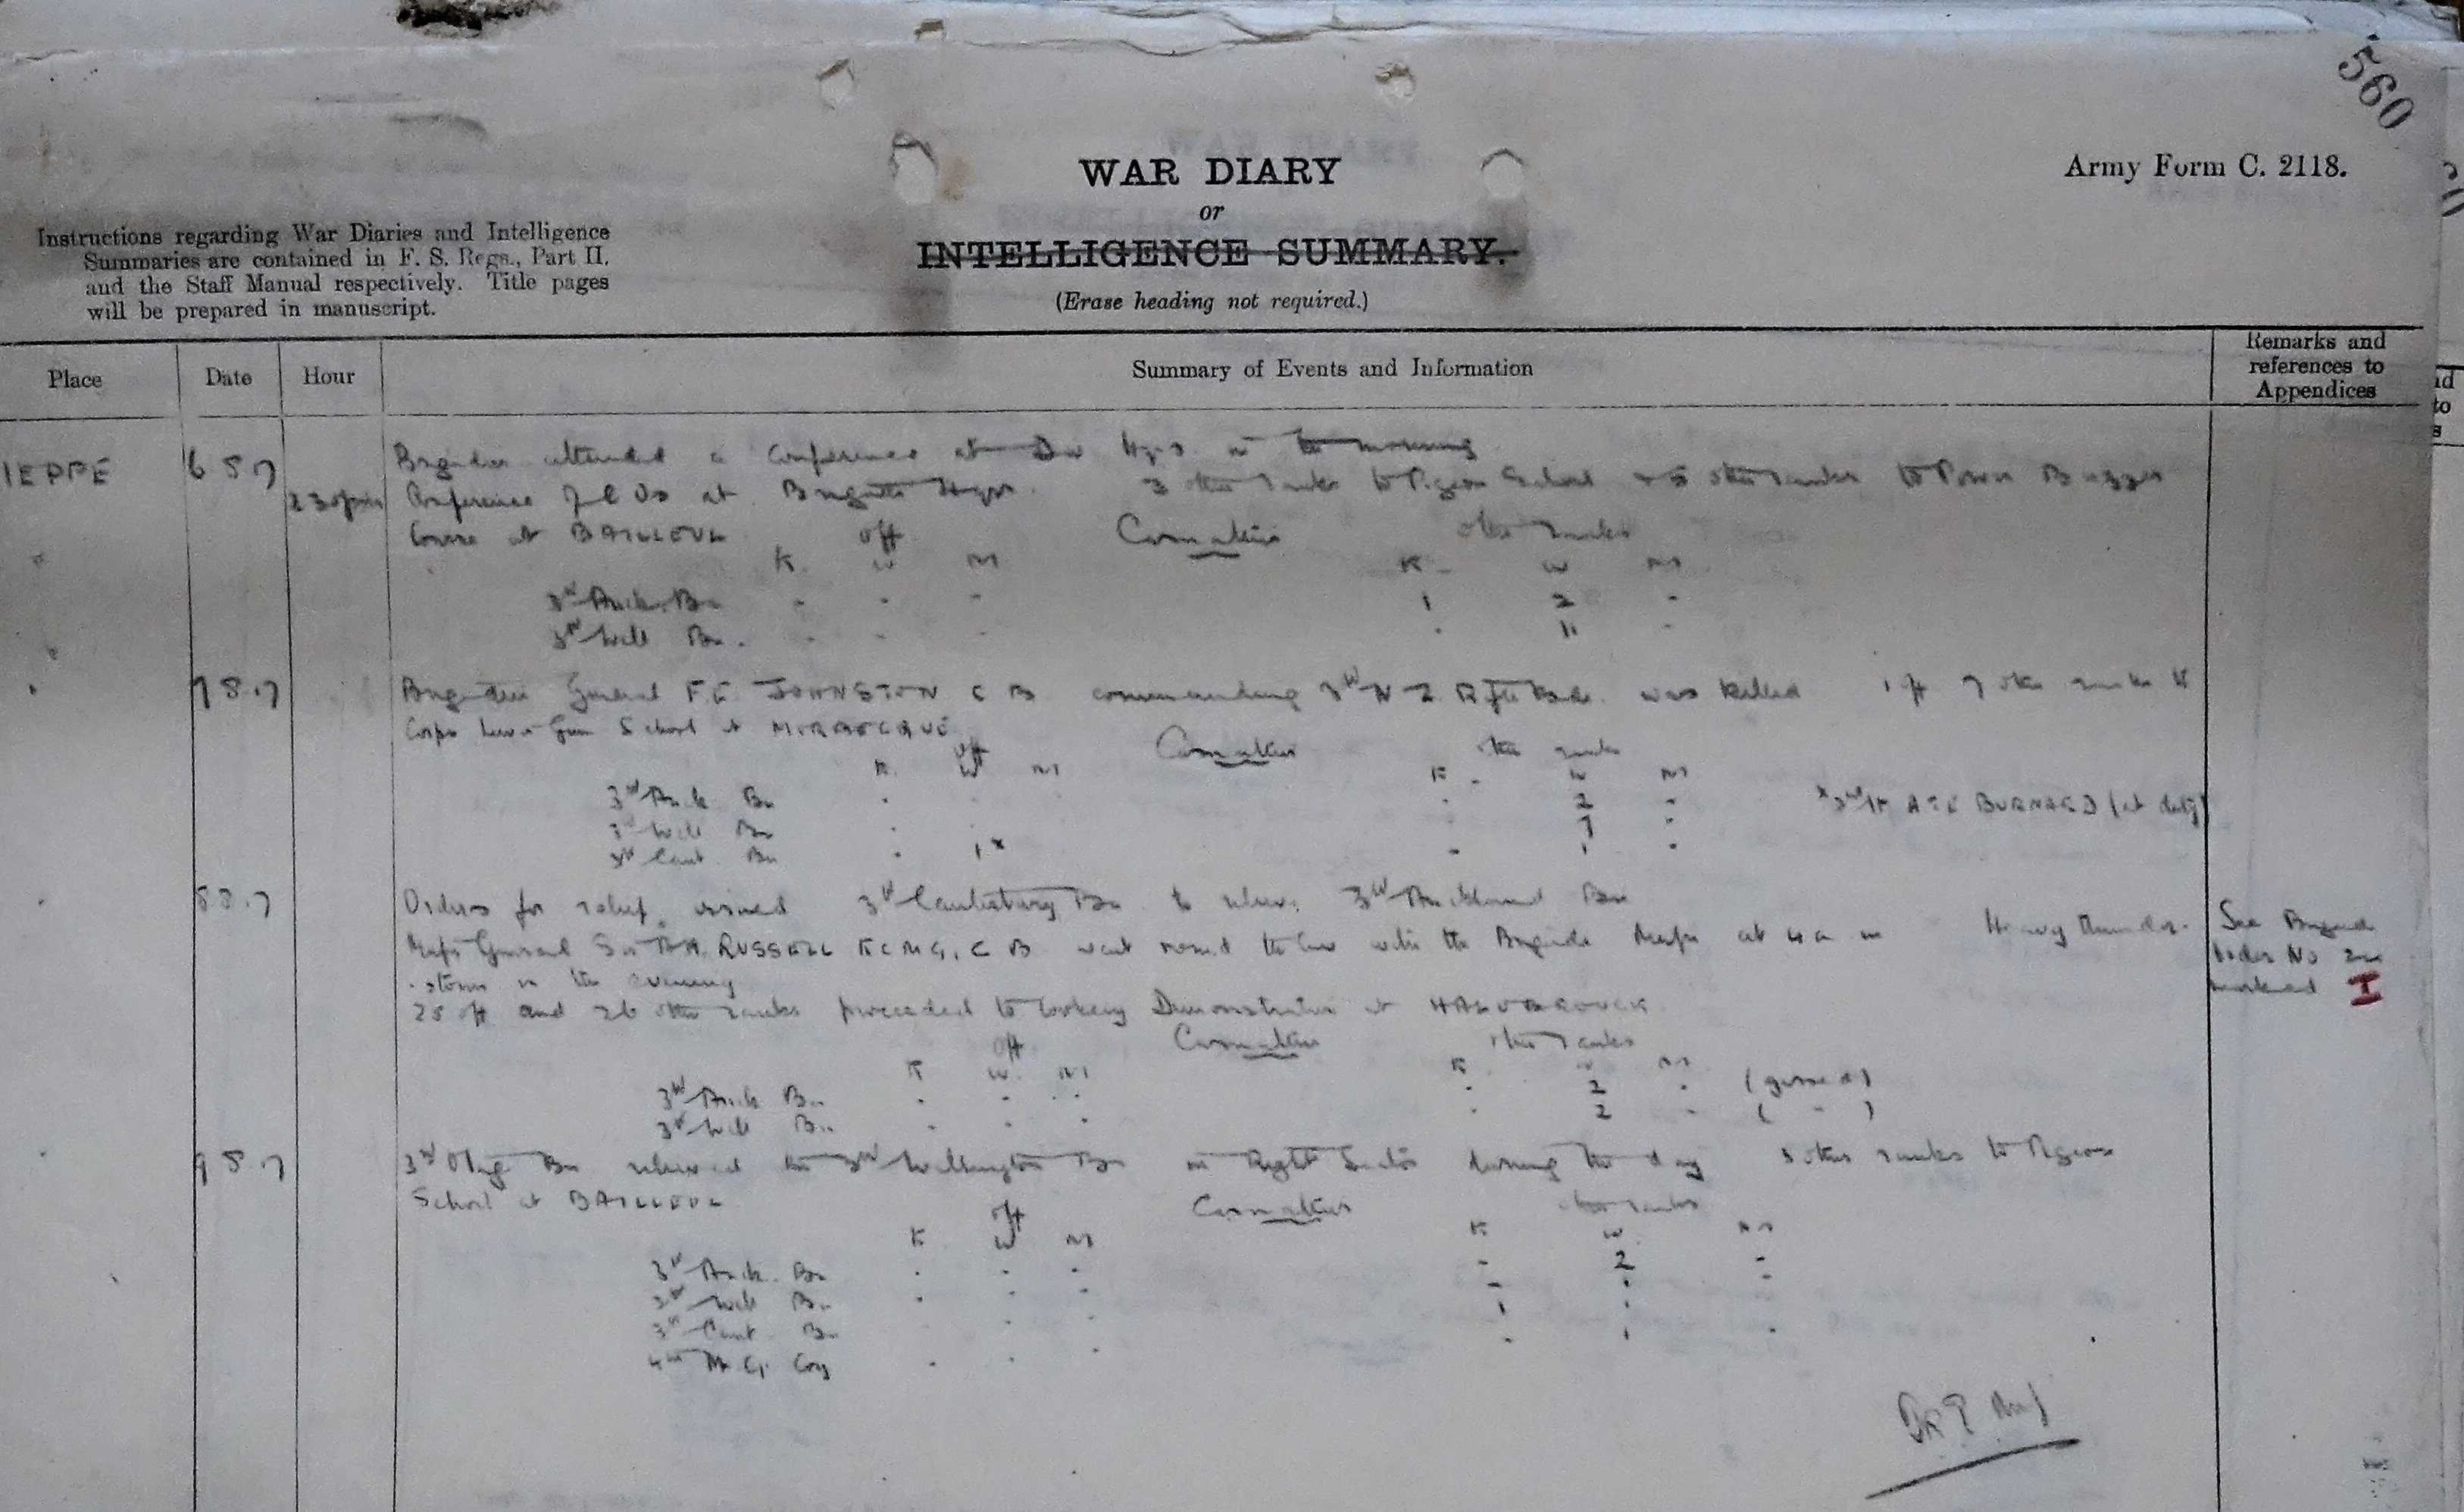 560
WAR DIARY
Army Form C. 2118.
or
INTELLIGENCE SUMMARY.
(Erase heading not required.)
Instructions regarding War Diaries and Intelligence
Summaries are contained in F. S. Regs., Part II.
and the Staff Manual respectively. Title pages
will be prepared in manuscript.
Place Date Hour Summary of Events and Information Remarks and references to Appendices
IEPPE 6 8 17 Brigadier attended a Conference at Div Hqrs in the morning
2 30 pm Conference of C Os at Brigade Hqrs. 3 other ranks to Pigeon School + 5 other ranks to Power Buzzer
Course at BAILLEUL off Casualties other ranks
K. W M K W M
3rd Auck. Bn - - - 1 2 -
3rd Well Bn. - - - - 11 -
7 8.17 Brigadier General F.E. JOHNSTON C B commanding 3rd N Z Rifle Bde. was killed 1 off 7 other ranks to
Corps Lewis Gun School at
off Casualties other ranks
K. W M K W M
3rd Auck Bn - - 2 -
3rd Well Bn - - 7 -
3rd Cant. Bn - 1x - 1 -
x 2nd Lt A T E BURNARD (at duty)
8 8.17 Orders for relief issued 3rd Canterbury Bn to relieve 3rd Auckland Bn
Major General Sir A.H. RUSSELL K C M G, C B went round the line with the Brigade Major at 4 a m Heavy thunder-
storm in the evening
See Brigade
Order No
marked I
25 off and 26 other ranks proceeded to Cookery Demonstration at HAZEBROUCK
off Casualties other ranks
K W. M K W M
3rd Auck Bn - - - - 2 - (gassed)
3rd Well Bn - - - - 2 - ( " )
9 8.17 3rd Otago Bn relieved the 3rd Wellington Bn in Right Sector during the day 3 other ranks to Pigeon
School at BAILLEUL off Casualties other ranks
K W M K W. M
3rd Auck. Bn - - - - 2 -
3rd Well Bn - - - - 1 -
3rd Cant Bn - - 1 1
4th M. G. Coy - - - - 1 -